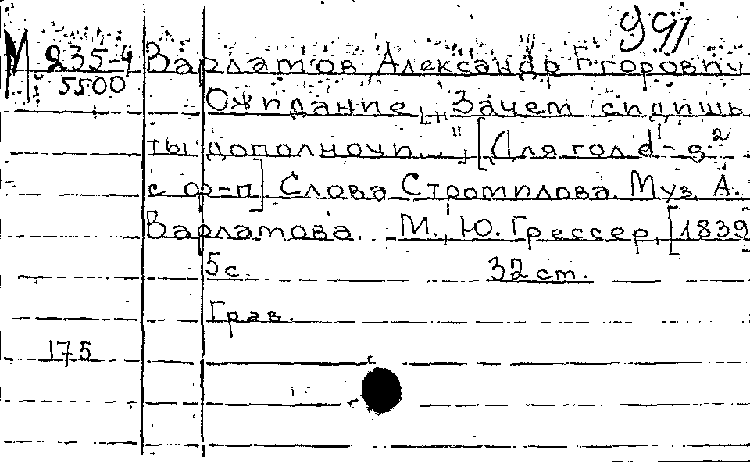 991
М 235-4 Варламов Александр Егорович
5500
Ожидание. „Зачем сидишь
ты дополночи..." [Для гол. d¹-g²
с ф-п]. Слова Стромилова. Муз. А.
Варламова. М., Ю. Грессер, [1839
5с. 32 cm.
Грав.
175